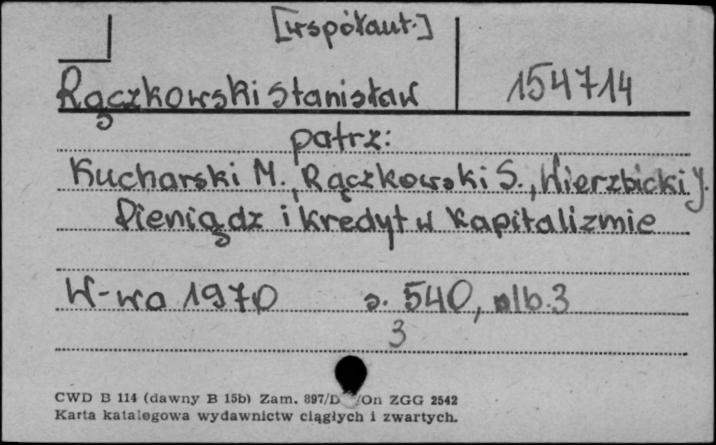 [współaut.]
Rączkowski Stanisław 154714
patrz:
Kucharski M., Rączkowski S., Wierzbicki J.
Pieniądz i kredyt w kapitalizmie
W-wa 1970 s. 540, nlb. 3
3
CWD B 114 (dawny B 15b) Zam. 897/D /On ZGG 2542
Karta katalogowa wydawnictw ciągłych i zwartych.